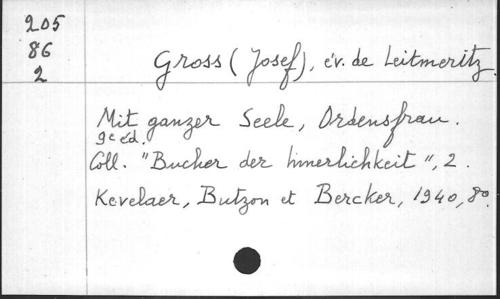 205
86
2
Gross (Josef), év. de Leitmeritz.
Mit ganzer Seele, Ordensfrau.
9e éd.
Coll. "Bucher der Innerlichkeit", 2.
Kevelaer, Butzon et Bercker, 1940, 8°.